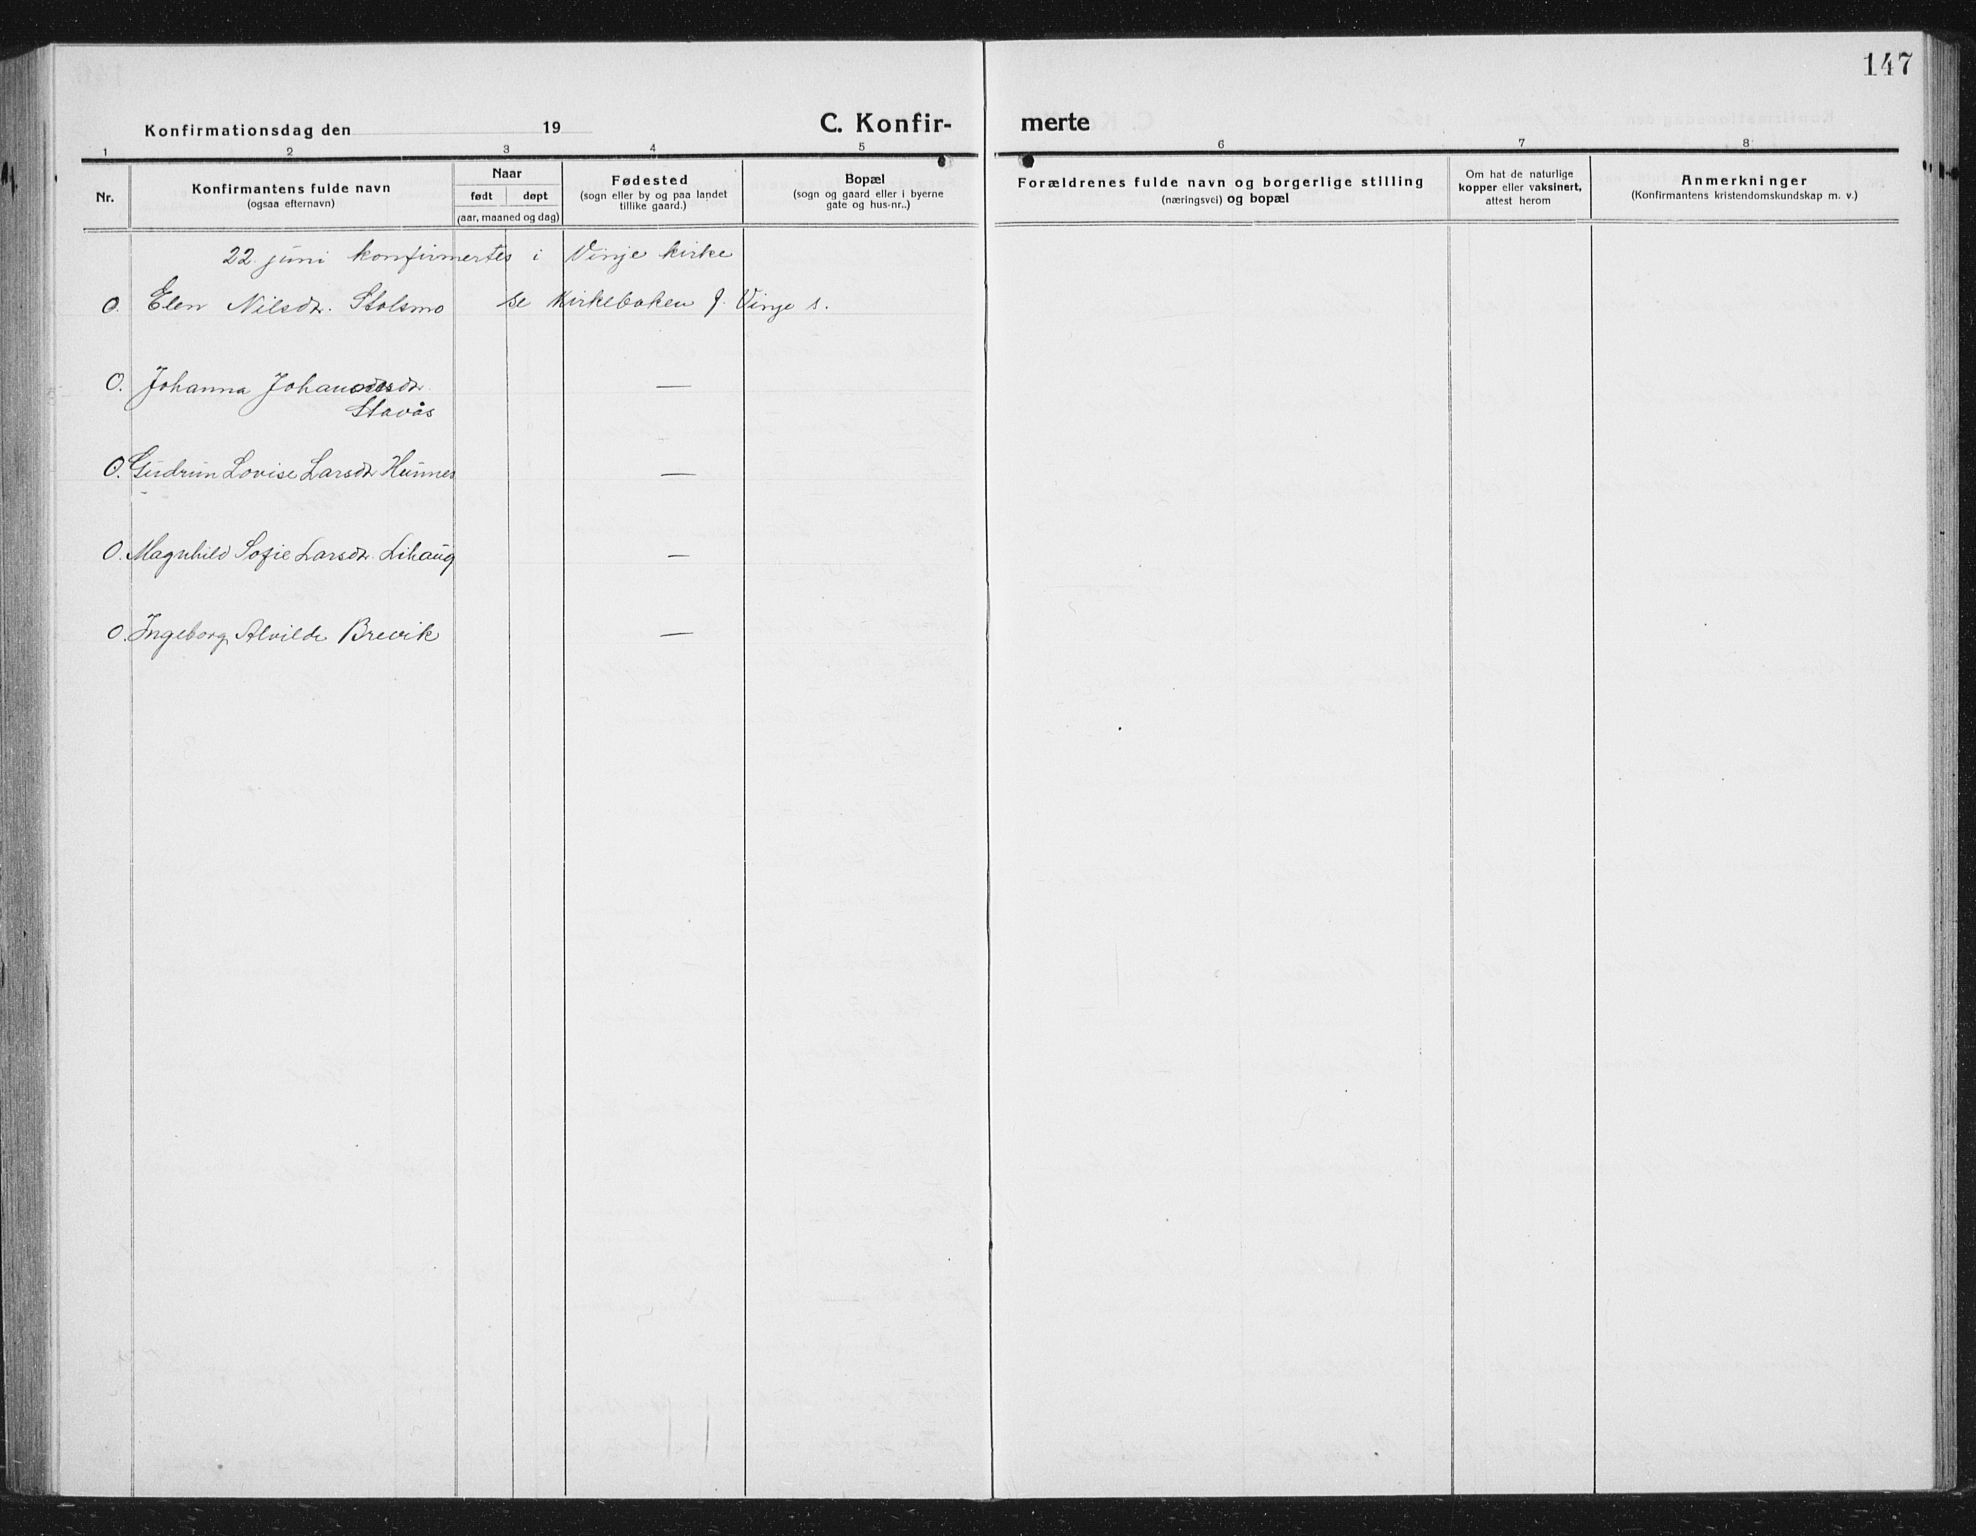 147
Konfirmationsdag den 19
C. Konfir- merte
1 2 3 4 5 6 7 8
Nr.
Konfirmantens fulde navn
(ogsaa efternavn)
Naar
født døpt
(aar, maaned og dag)
Fødested
(sogn eller by og paa landet
tillike gaard.)
Bopæl
(sogn og gaard eller i byerne
gate og hus-nr..)
Forældrenes fulde navn og borgerlige stilling
(næringsvei) og bopæl
Om hat de naturlige
kopper eller vaksinert,
attest herom
Anmerkninger
(Konfirmantens kristendomskundskap m. v.)
22 juni konfirmertes i Vinje kirke
O. Elen Nilsdr. Stolsmo se Kirkeboken f. Vinje s.
O. Johanna Johannesdr. —
Stavås
O. Gudrun Lovise Larsdr Hunnes —
O. Magnhild Sofie Larsdr. Lihaug —
O. Ingeborg Alvilde Brevik —